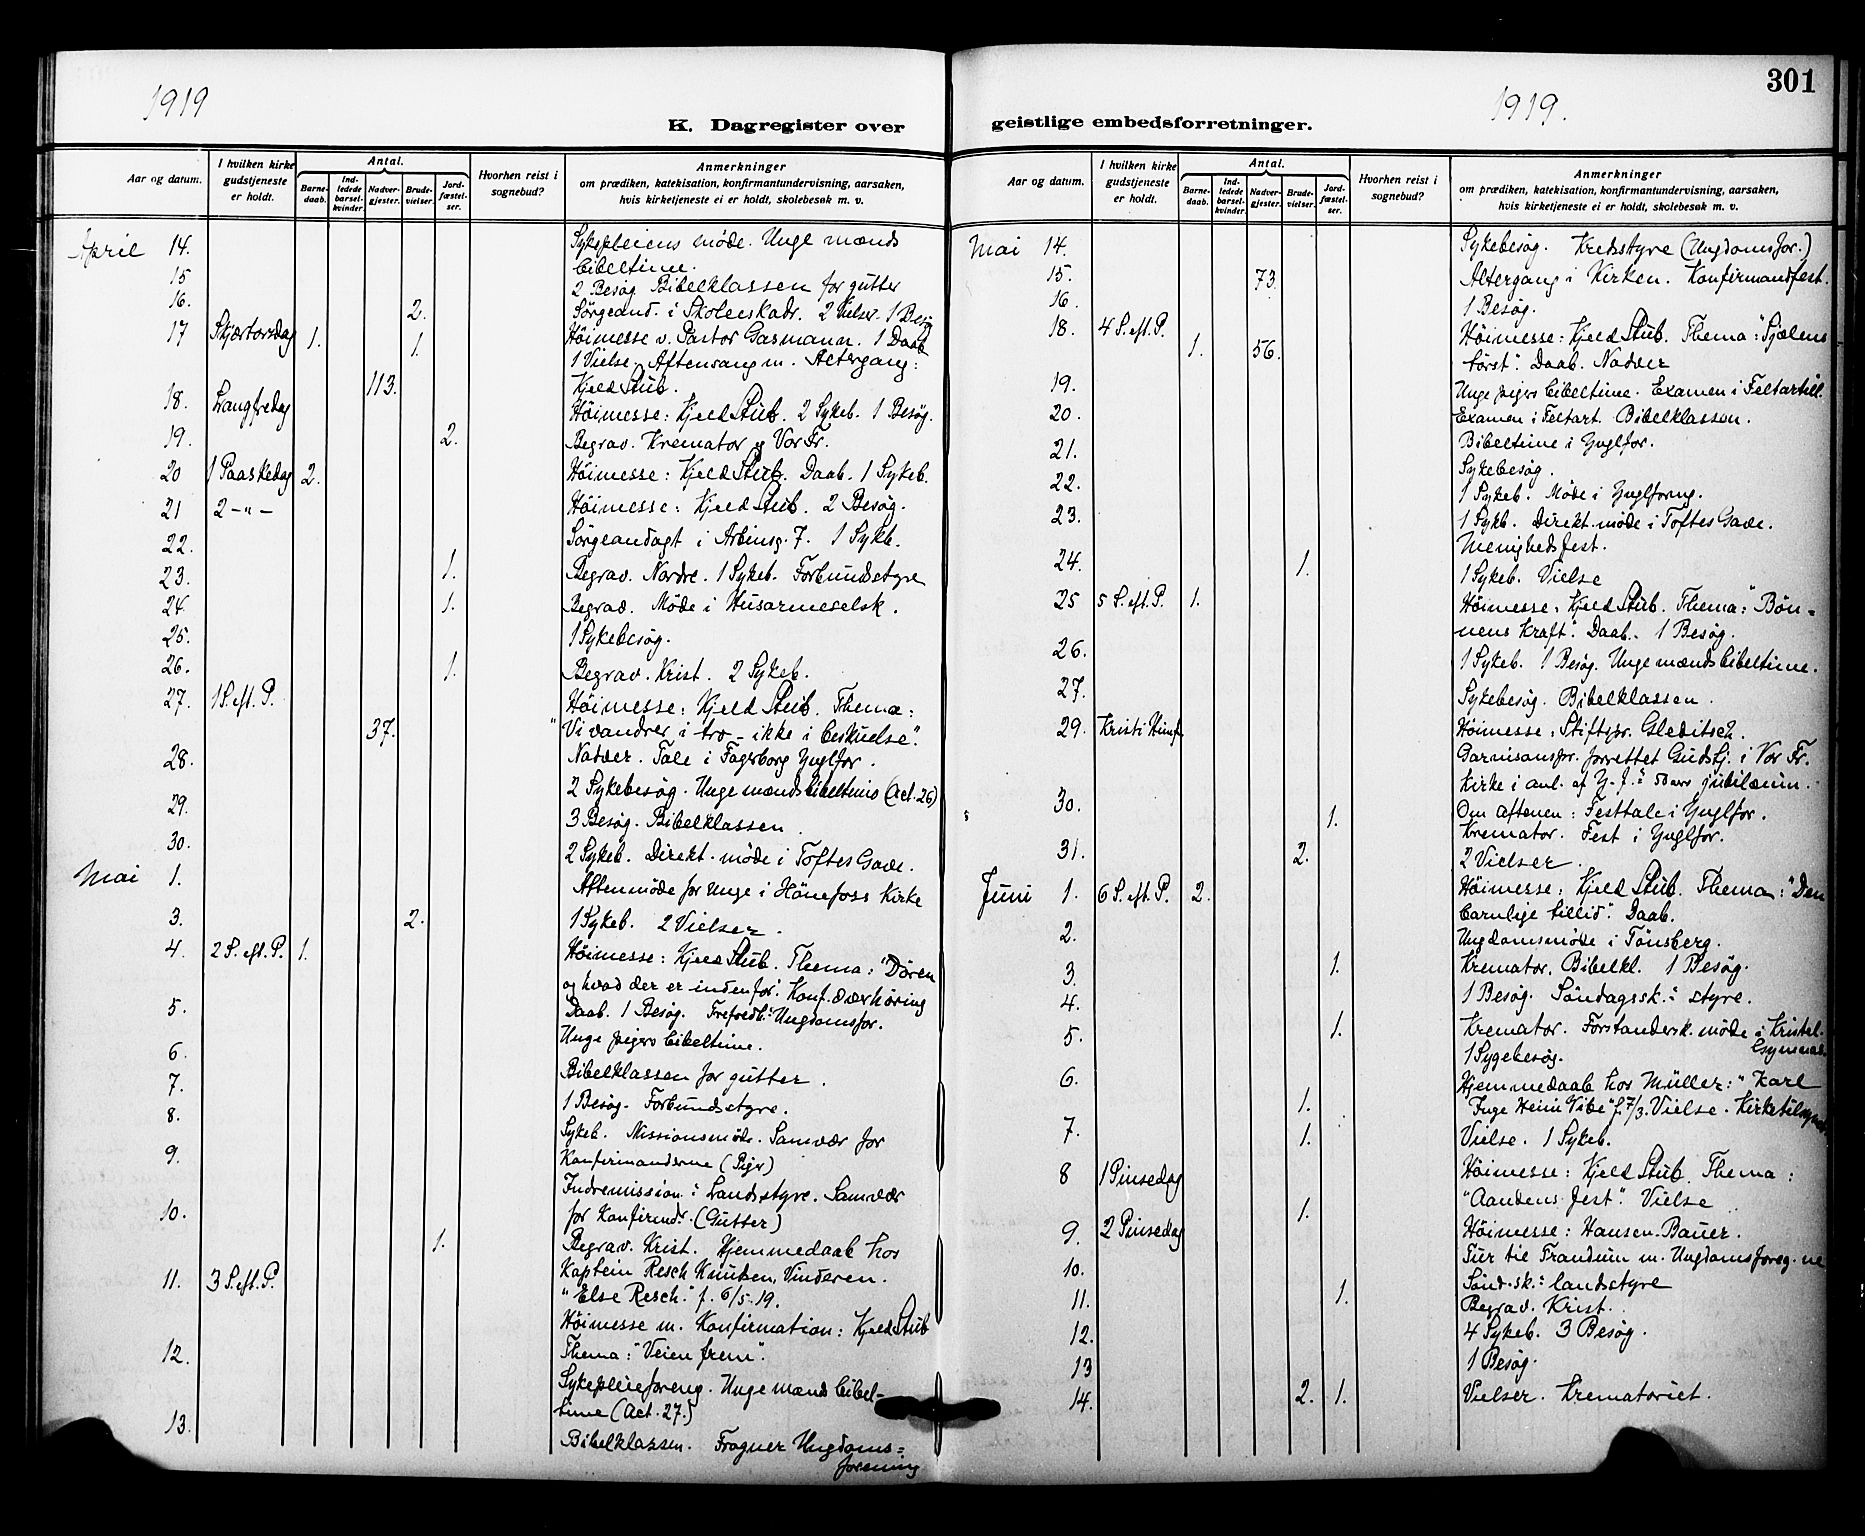 1919
K. Dagregister over
Aar og datum. I hvilken kirke gudstjeneste er holdt. Antal. Barnedaab. Indledede barselkvinder. Nadvergjester. Brudevielser. Jordfæstelser. Hvorhen reist i sognebud? Anmerkninger om prædiken, katekisation, konfirmantundervisning, aarsaken, hvis kirketjeneste ei er holdt, skolebesøk m. v.
April 14. Sykepleiens møde. Unge mænds
bibeltime.
15 2 Besøg Bibelklassen for gutter
16. 2. Sørgeand. i Skoleeskadr. 2 Vielser. 1 Besøg
17 Skjærtorsdag 1. 1. Høimesse v. Pastor Gasmann. 1 Daab
1 Vielse. Aftensang m. Altergang:
113. Kjeld Stub.
18. Langfredag Høimesse: Kjeld Stub. 2 Sykeb. 1 Besøg.
19. 2. Begrav. Kremator og Vor Fr.
20 1 Paaskedag 2. Høimesse: Kjeld Stub. Daab. 1 Sykeb.
21 2 -"- Høimesse: Kjeld Stub. 2 Besøg.
22. Sørgeandagt i Arbinsg. 7. 1 Sykb.
23. 1. Begrav. Nordre. 1 Sykeb. Forbundsstyre
24. 1. Begrav. Møde i Husarmeselsk.
25. 1 Sykebesøg.
26. 1. Begrav. Krist. 2 Sykeb.
27. 1 S. eft. P. Høimesse: Kjeld Stub. Thema:
37. "Vi vandrer i tro - ikke i beskuelse".
Natver. Tale i Fagerborg Ynglfor.
28. 2 Sykebesøg. Unge mænds bibeltime (Act. 26)
29. 3 Besøg. Bibelklassen.
30. 2 Sykeb. Direkt. møde i Toftes Gave.
Mai 1. Aftenmøde for Unge i Hönefoss Kirke
3. 2. 1 Sykeb. 2 Vielser.
4. 2 S. eft. P. 1. Høimesse: Kjeld Stub. Thema: "Dören
og hvad der er indenfor". Konf. overhöring
Daab. 1 Besøg. Ungdomsfor.
5. Unge pigers bibeltime.
6. Bibelklassen for gutter.
7. 1 Besøg. Forbundsstyre.
8. Sykeb. Missionsmöde. Samvær for
Konfirmanderne (Piger)
9. Indremission: Landsstyre. Samvær
for Konfirmdr. (Gutter)
10. 1. Begrav. Krist. Hjemmedaab hos
Kaptein Resch Knudsen, Vinderen.
"Else Resch" f. 6/5.19.
11. 3 S. eft. P. Høimesse m. Konfirmation: Kjeld Stub
Thema: "Veien frem".
12. Sykepleieforeng. Unge mænds bibel-
time (Act. 27.)
13. Bibelklassen. Frogner Ungdoms=
forening
301
1919.
geistlige embedsforretninger.
Aar og datum. I hvilken kirke gudstjeneste er holdt. Antal. Barnedaab. Indledede barselkvinder. Nadvergjester. Brudevielser. Jordfæstelser. Hvorhen reist i sognebud? Anmerkninger om prædiken, katekisation, konfirmantundervisning, aarsaken, hvis kirketjeneste ei er holdt, skolebesøk m. v.
Mai 14. Sykebesøg. Kredsstyre (Ungdomsfor.)
15. 73. Altergang i Kirken. Konfirmandfest.
16. 1 Besøg.
18. 4 S. eft. P. 1. 56. Høimesse: Kjeld Stub. Thema: "Sjælens
törst". Daab. Nadver
19. Unge pigers bibeltime. Examen i Feltartill.
20. Examen i Feltart. Bibelklassen.
21. Bibeltime i Ynglfor.
Sykebesøg.
22. 1 Sykeb. Møde i Ynglforng.
23. 1 Sykb. Direkt. möde i Toftes Gave.
Menighedsfest.
24. 1. 1 Sykeb. Vielse
25 5 S. eft. P. 1. Høimesse: Kjeld Stub. Thema: "Bön-
nens Kraft". Daab. 1 Besøg.
26. 1 Sykeb. 1 Besøg. Unge mænds bibeltime.
27. Sykebesøg. Bibelklassen.
29. Kristi Himf. Høimesse: Stiftspr. Gleditsch.
Garnisonspr. forrettet Gudstj. i Vor Fr.
Kirke i anl. af Y-f.: 50 aars jubilæum.
Om aftenen: Festtale i Ynglfor.
30. 1. Kremator. Fest i Ynglfor.
31. 2. 2 Vielser.
Juni 1. 6 S. eft. P. 2. Høimesse: Kjeld Stub. Thema: "Den
barnlige tillid". Daab.
2. Ungdomsmöde i Tönsberg.
3. 1. Kremator. Bibelkl. 1 Besøg.
4. 1 Besøg. Söndagssk.: styre.
5. 1. Kremator. Forstandersk. möde i Kristel.
Gymnas.
1 Sygebesøg.
6. 1. Hjemmedaab hos Müller: "Karl
Inge Heim Vibe" f. 7/3. Vielse. Kirketilsyn
7. 1. Vielse. 1 Sykeb.
8 1 Pinsedag 1. Høimesse: Kjeld Stub. Thema:
"Aandens fest". Vielse
9. 2 Pinsedag Høimesse: Hansen-Bauer.
Tur til Trandum m. Ungdomsforeg.ne
10. Sönd.sk.: landsstyre
11. 1. Begrav. Krist.
12. 4 Sykeb. 3 Besøg.
13 1 Besøg.
14. 2. 1. Vielser. Krematoriet.